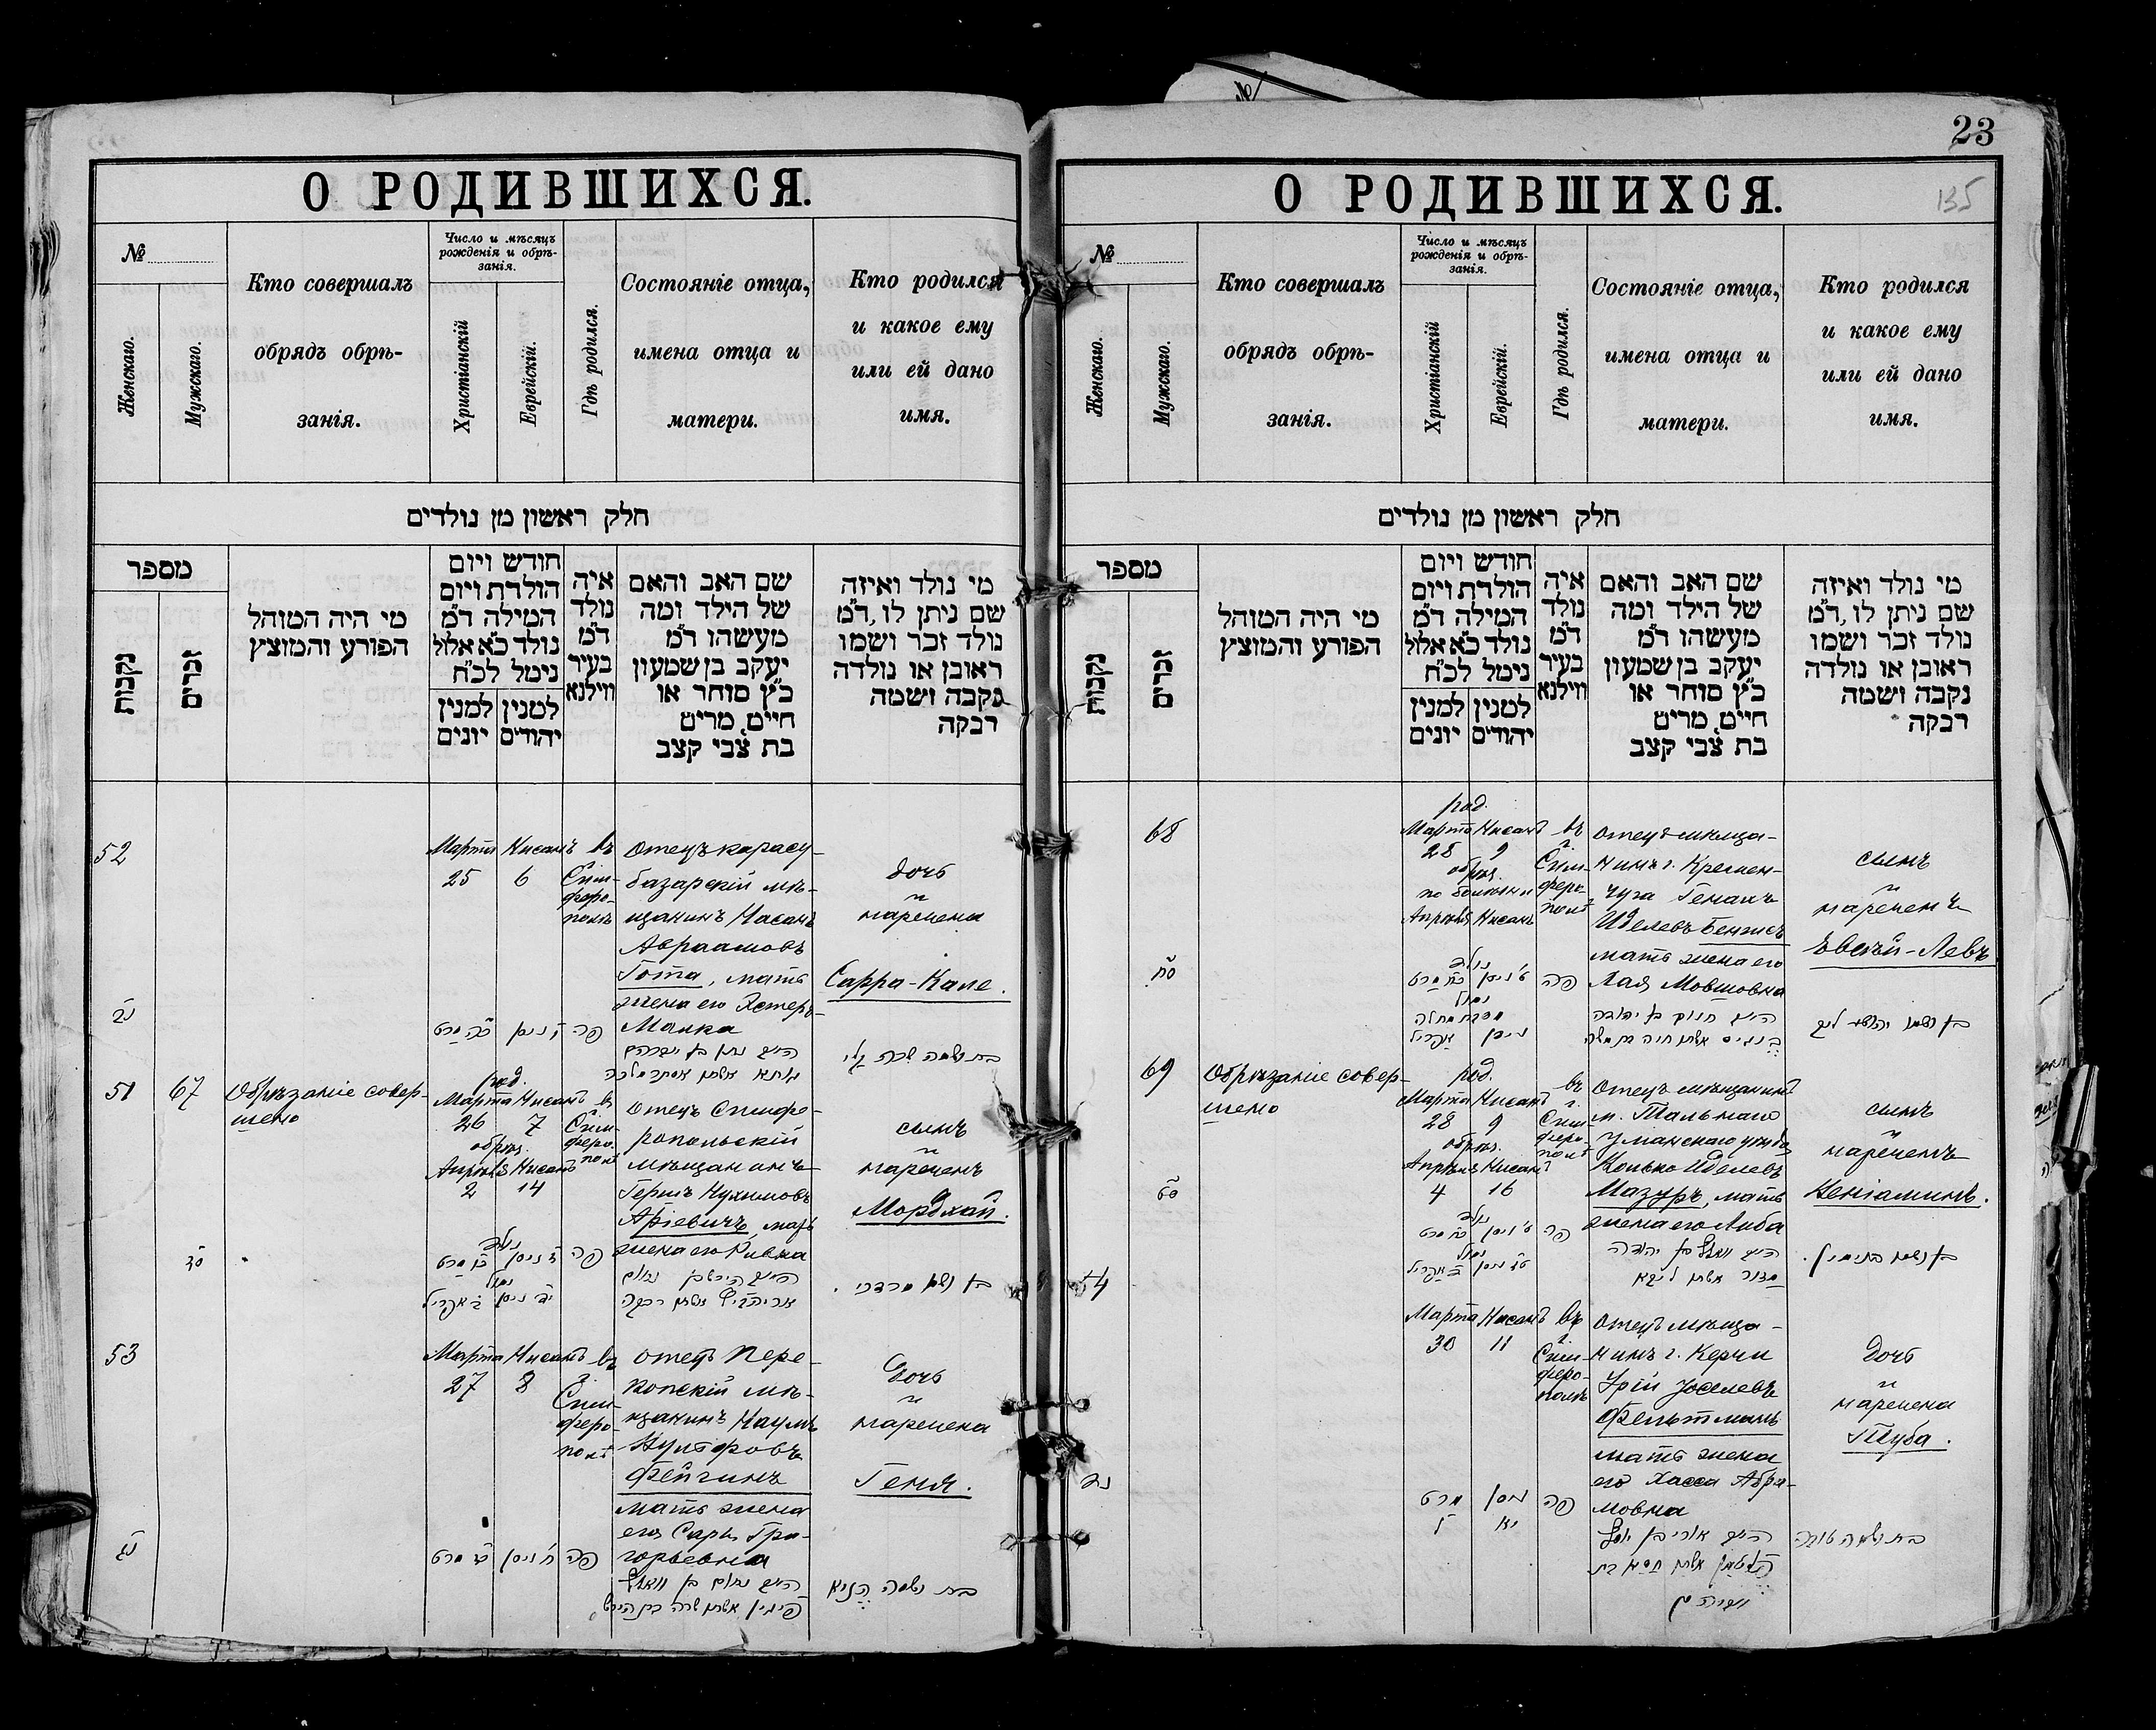 О РОДИВШИХСЯ.
№
Женскаго.
Мужскаго.
Кто совершалъ
обрядъ обрѣ-
занія.
Число и мѣсяцъ
рожденія и обрѣ-
занія.
Христіанскій
Еврейскій.
Гдѣ родился.
Состояніе отца,
имена отца и
матери.
Кто родился
и какое ему
или ей дано
имя.
חלק ראשון מן נולדים
מספר
נקבות
זכרים
מי היה המוהל
הפורע והמוצץ
חודש ויום
הולדת ויום
המילה ד״מ
נולד כ״א אלול
נימל לכ״ח
למנין יונים
למנין יהודים
איה
נולד
ד״מ
בעיר
ווילנא
שם האב והאם
של הילד ומה
מעשהו ד״מ
יעקב בן שמעון
כ״ץ סוחר או
חייט, מרים
בת צבי קצב
מי נולד ואיזה
שם ניתן לו, ד״מ
נולד זכר ושמו
ראובן או נולדה
נקבה ושמה
רבקה
52
Марта Нисанъ
25 6
въ
Сим-
феро-
полѣ
отецъ карасу-
базарскій мѣ-
щанинъ Насанъ
Авраамовъ
Гота, мать
жена его Эстеръ-
Малка
дочь
наречена
Сарра-Кале.
נב
פה
היינו נתן בן אברהם
גוטא אשתו אסתר מלכה
בת ושמה שרה קלי
51 67
Обрѣзаніе совер-
шено
род.
Марта Нисанъ
26 7
обрѣз.
Апрѣля Нисанъ
2 14
въ
г.
Сим-
феро-
полѣ
отецъ Симфе-
ропольскій
мѣщанинъ
Гершъ Нухимовъ
Аріевичъ, мать
жена его Ривка
сынъ
нареченъ
Мордхай.
נולד
פה
נימול
בן ושמו מרדכי.
53
Марта Нисанъ
27 8
въ
г.
Сим-
феро-
полѣ
отецъ Пере-
копскій мѣ-
щанинъ Наумъ
Фейгинъ
мать жена
его Сара Гри-
горьевна
дочь
наречена
Геня.
נג
פה
פייגין אשתו שרה בת הירש
בת ושמה העניא
23
135
О РОДИВШИХСЯ.
№
Женскаго.
Мужскаго.
Кто совершалъ
обрядъ обрѣ-
занія.
Число и мѣсяцъ
рожденія и обрѣ-
занія.
Христіанскій
Еврейскій.
Гдѣ родился.
Состояніе отца,
имена отца и
матери.
Кто родился
и какое ему
или ей дано
имя.
חלק ראשון מן נולדים
מספר
נקבות
זכרים
מי היה המוהל
הפורע והמוצץ
חודש ויום
הולדת ויום
המילה ד״מ
נולד כ״א אלול
נימל לכ״ח
למנין יונים
למנין יהודים
איה
נולד
ד״מ
בעיר
ווילנא
שם האב והאם
של הילד ומה
מעשהו ד״מ
יעקב בן שמעון
כ״ץ סוחר או
חייט, מרים
בת צבי קצב
מי נולד ואיזה
שם ניתן לו, ד״מ
נולד זכר ושמו
ראובן או נולדה
נקבה ושמה
רבקה
68
род.
Марта Нисанъ
28 9
обрѣз.
по болѣзни
Апрѣля Нисанъ
въ
г.
Сим-
феро-
полѣ
отецъ мѣща-
нинъ г. Кремен-
чуга Генахъ
Иделевъ
мать жена его
Хая Мовшовна
сынъ
нареченъ
נולד
פה
69
Обрѣзаніе совер-
шено
род.
Марта Нисанъ
28 9
обрѣз.
Апрѣля Нисанъ
4 16
въ
г.
Сим-
феро-
полѣ
отецъ мѣщанинъ
м. Тальнаго
Уманскаго уѣзда
Иделевъ
Мазуръ, мать
жена его Либа
сынъ
нареченъ
Веніаминъ.
נולד
פה
בן ושמו בנימין.
54
Марта Нисанъ
30 11
въ
г.
Сим-
феро-
полѣ
отецъ мѣща-
нинъ г. Керчи
Урій Іоселевъ
Фельтманъ
мать жена
его Хасса Абра-
мовна
дочь
наречена
Туба.
נד
מרט
ניסן
פה
בת ושמה טובה